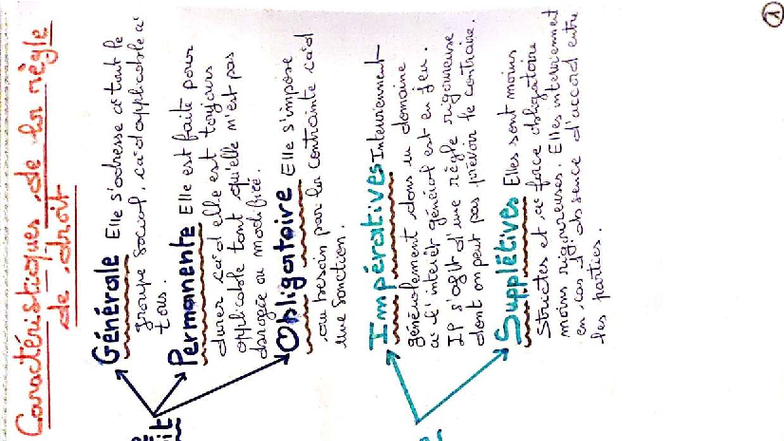 Caractéristiques de la règle
de droit
Générale Elle s'adresse à tout le
groupe social, càd applicable à
tous.
Permanente Elle est faite pour
durer càd elle est toujours
applicable tant qu'elle n'est pas
abrogée ou modifiée.
Obligatoire Elle s'impose
au besoin par la contrainte càd
une sanction.
Impératives Interviennent
généralement dans un domaine
où l'intérêt général est en jeu.
IP s'agit d'une règle rigoureuse
dont on peut pas prévoir le contraire.
Supplétives Elles sont moins
strictes et à force obligatoire
moins rigoureuses. Elles interviennent
en cas d'absence d'accord entre
les parties.
1